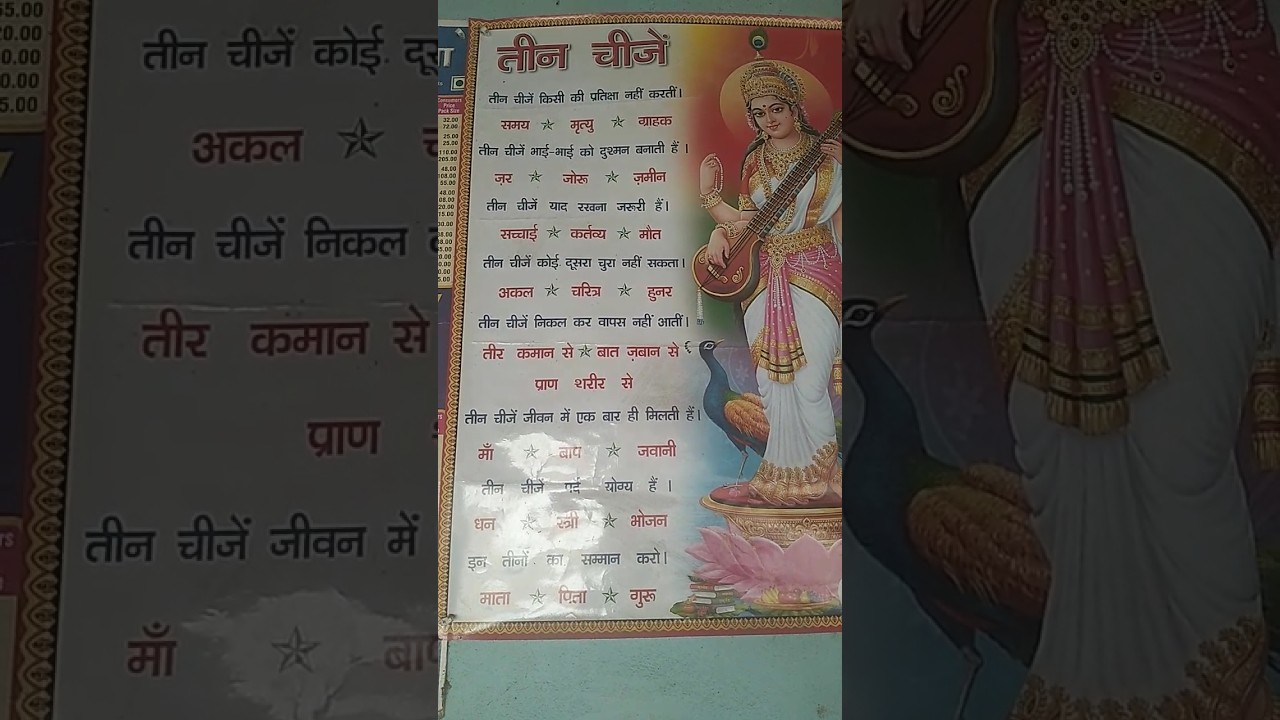 तीन चीजें
तीन चीजें किसी की प्रतिक्षा नहीं करतीं।
समय ☆ मृत्यु ☆ ग्राहक
तीन चीजें भाई-भाई को दुश्मन बनाती हैं ।
ज़र ☆ जोरू ☆ ज़मीन
तीन चीजें याद रखना जरूरी हैं।
सच्चाई ☆ कर्तव्य ☆ मौत
तीन चीजें कोई दूसरा चुरा नहीं सकता।
अकल ☆ चरित्र ☆ हुनर
तीन चीजें निकल कर वापस नहीं आतीं।
तीर कमान से ☆ बात ज़बान से
प्राण शरीर से
तीन चीजें जीवन में एक बार ही मिलती हैं।
माँ ☆ बाप ☆ जवानी
तीन चीजें पर्द योग्य हैं ।
धन ☆ स्त्री ☆ भोजन
इन तीनों का सम्मान करो।
माता ☆ पिता ☆ गुरू